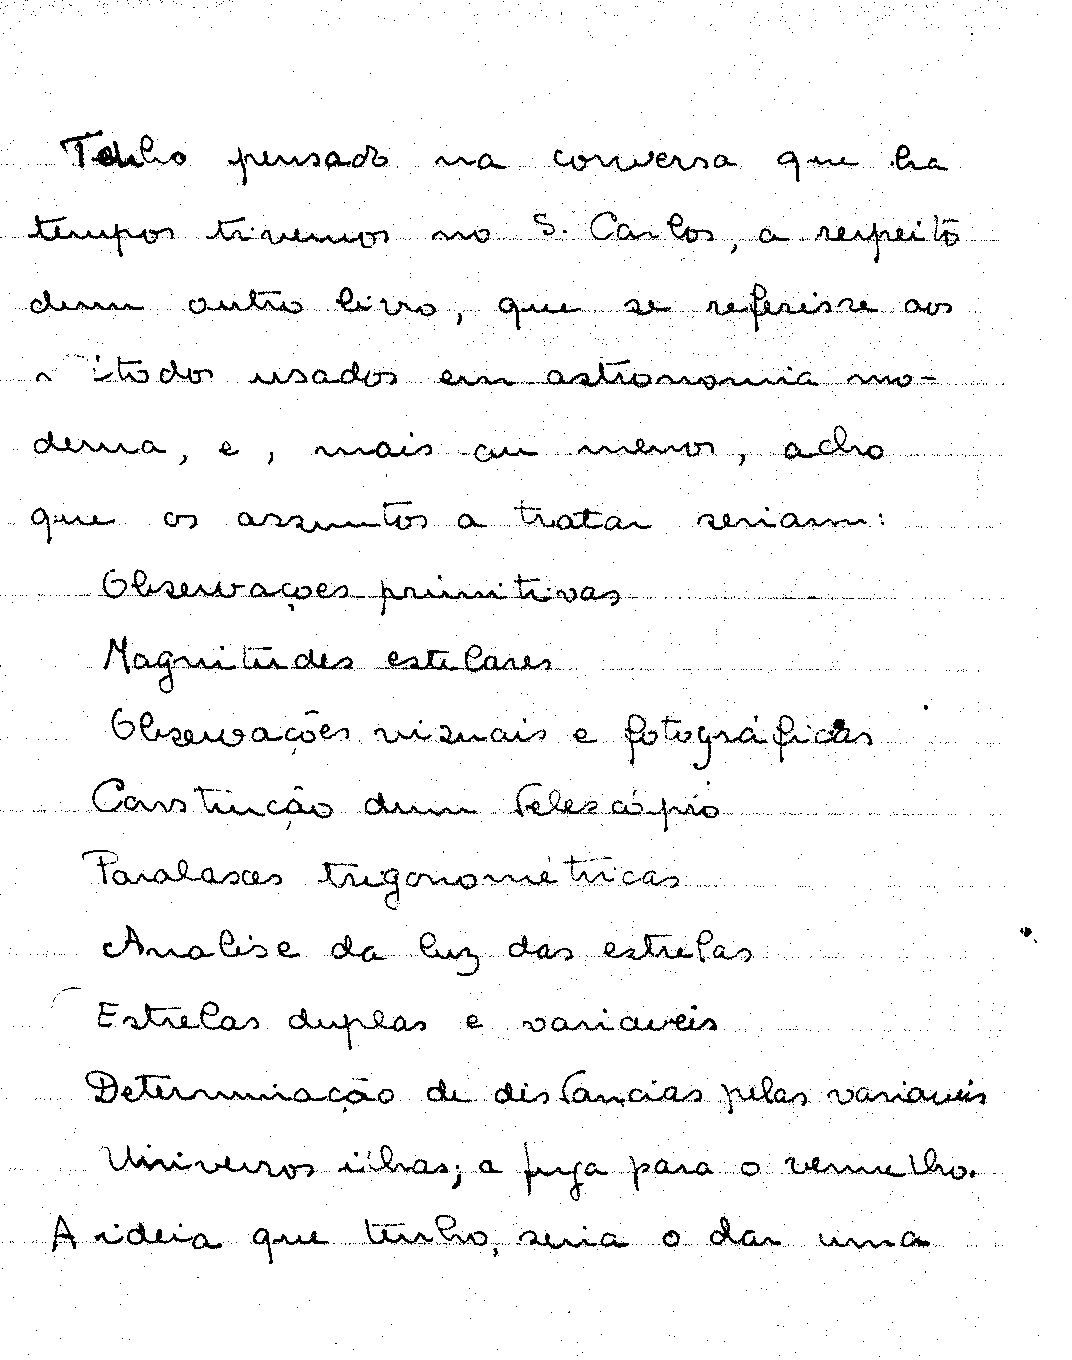 Tenho pensado na conversa que ha
tempos tivemos no S. Carlos, a respeito
dum outro livro, que se referisse aos
usados em astronomia mo-
derna, e, mais ou menos, acho
que os assuntos a tratar seriam:
Observaçoes primitivas
Magnitudes estelares
Observações visuais e fotográficas
Construção dum Telescópio
Paralaxes trigonométricas
Analise da luz das estrelas
Estrelas duplas e variaveis
Determinação de distancias pelas variaveis
Universos ilhas; a fuga para o vermelho.
A ideia que tenho, seria o dar uma